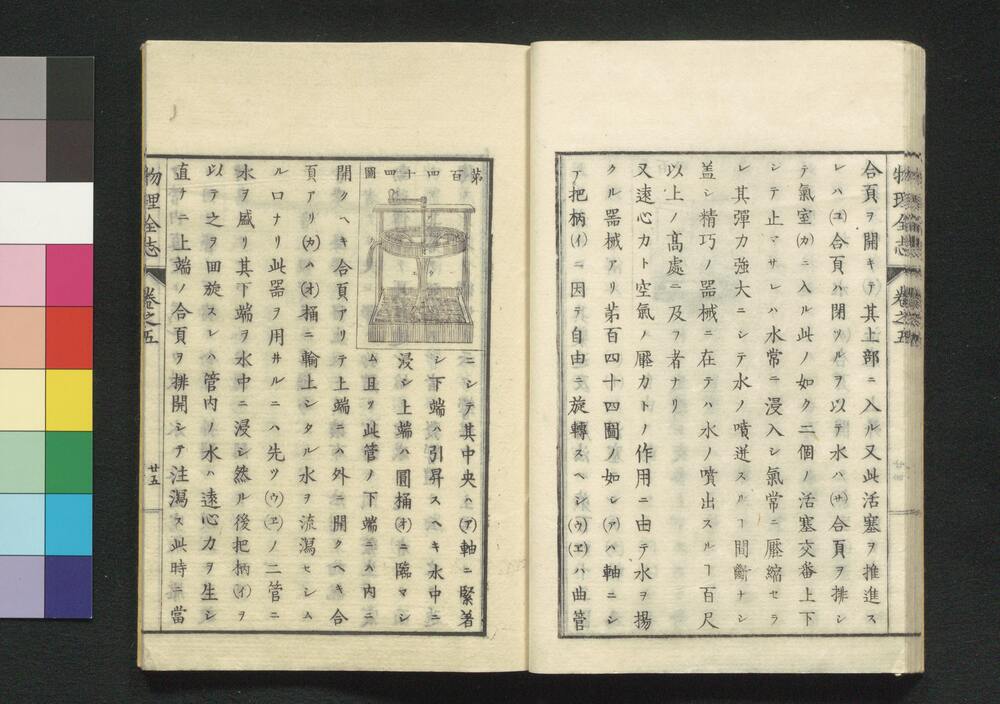 物理全志 卷之五
合頁ヲ開キ(テ)其上部ニ入ル又此活塞ヲ推進ス
レハ(ユ)合頁ハ閉ツルヲ以テ水ハ(サ)合頁ヲ排シ
テ氣室(カ)ニ入ル此ノ如ク二個ノ活塞交番上下
シテ止マサレハ水常ニ浸入シ氣常ニ壓縮セラ
レ其彈力強大ニシテ水ノ噴迸スルヿ間斷ナシ
盖シ精巧ノ器械ニ在テハ水ノ噴出スルヿ百尺
以上ノ髙處ニ及フ者ナリ
又遠心力ト空氣ノ壓力トノ作用ニ由テ水ヲ揚
クル器械アリ第百四十四圖ノ如シ(ア)ハ軸ニシ
テ把柄(イ)ニ因テ自由ニ旋轉スヘシ(ウ)(エ)ハ曲管
第百四十四圖
ニシテ其中央ハ(ア)軸ニ緊着
シ下端ハ引昇スヘキ水中ニ
浸シ上端ハ圓桶(オ)ニ臨マシ
ム且ツ此管ノ下端ニハ内ニ
開クヘキ合頁アリテ上端ニハ外ニ開クヘキ合
頁アリ(カ)ハ(オ)桶ニ輸上シタル水ヲ流瀉セシム
ル口ナリ此器ヲ用井ルニハ先ツ(ウ)(エ)ノ二管ニ
水ヲ盛リ其下端ヲ水中ニ浸シ然ル後把柄(イ)ヲ
以テ之ヲ回旋スレハ管内ノ水ハ遠心力ヲ生シ
直チニ上端ノ合頁ヲ排開シテ注瀉ス此時ニ當
物理全志 卷之五 廿五